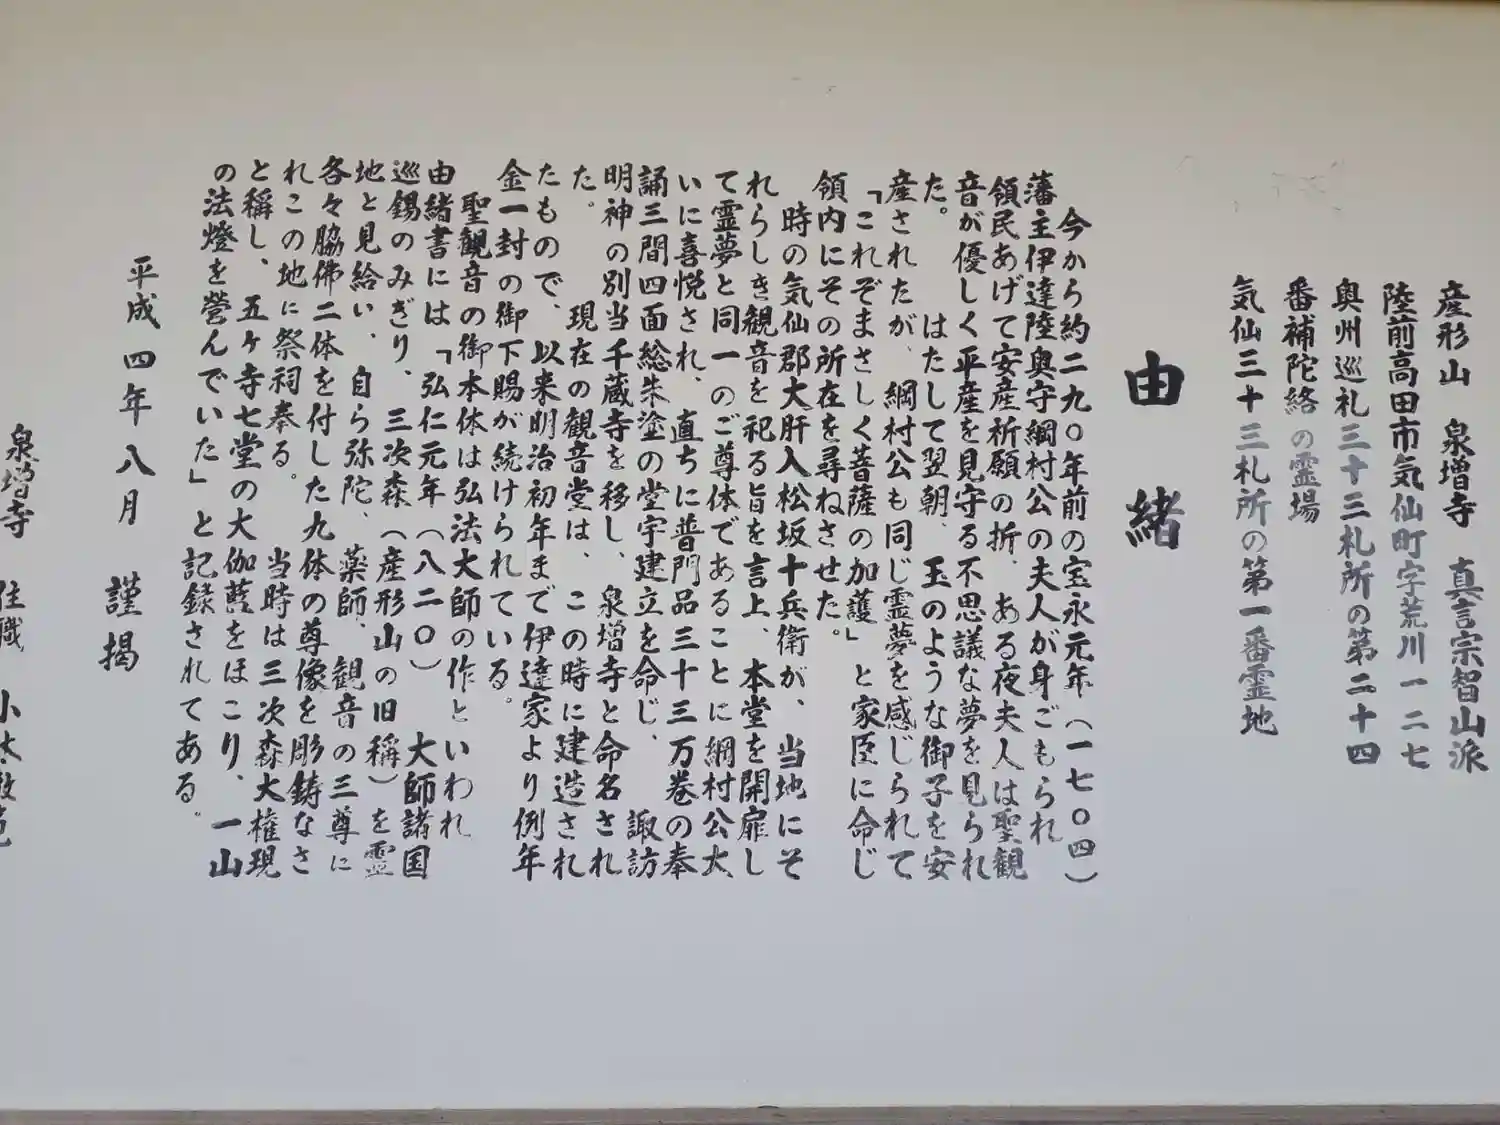 産形山　泉増寺　真言宗智山派
陸前高田市気仙町字荒川一二七
奥州巡礼三十三札所の第二十四
番補陀絡の霊場
気仙三十三札所の第一番霊地
由緒
今から約二九〇年前の宝永元年（一七〇四）
藩主伊達陸奥守綱村公の夫人が身ごもられ
領民あげて安産祈願の折、ある夜夫人は聖観
音が優しく平産を見守る不思議な夢を見られ
た。　はたして翌朝、玉のような御子を安
産されたが、綱村公も同じ霊夢を感じられて
「これぞまさしく菩薩の加護」と家臣に命じ
領内にその所在を尋ねさせた。
時の気仙郡大肝入松坂十兵衛が、当地にそ
れらしき観音を祀る旨を言上、本堂を開扉し
て霊夢と同一のご尊体であることに綱村公大
いに喜悦され、直ちに普門品三十三万巻の奉
誦三間四面総朱塗の堂宇建立を命じ、諏訪
明神の別当千蔵寺を移し、泉増寺と命名され
た。　現在の観音堂は、この時に建造され
たもので、以来明治初年まで伊達家より例年
金一封の御下賜が続けられている。
聖観音の御本体は弘法大師の作といわれ
由緒書には「弘仁元年（八二〇）　大師諸国
巡錫のみぎり、三次森（産形山の旧称）を霊
地と見給い、自ら弥陀、薬師、観音の三尊に
各々脇佛二体を付した九体の尊像を彫鋳なさ
れこの地に祭祠奉る。　当時は三次森大権現
と稱し、五ヶ寺七堂の大伽藍をほこり、一山
の法燈を営んでいた」と記録されてある。
平成四年八月　謹掲
泉増寺　住職　小太